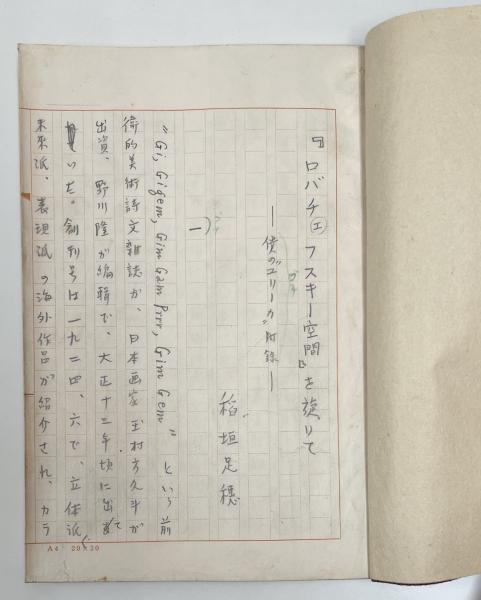 『ロバチエフスキー空間』を旋りて
―僕の“ユリーカ”附録―
稲垣足穂
一)
“Gi, Gigem, Gim Gam Prrr, Gim Gem” という前
衛的美術詩文雑誌が、日本画家玉村方久斗が
出資、野川隆が編輯で、大正十三年頃に出て
いた。創刊号は一九二四、六で、立体派、
未来派、表現派の海外作品が紹介され、カラ
A4 20×20